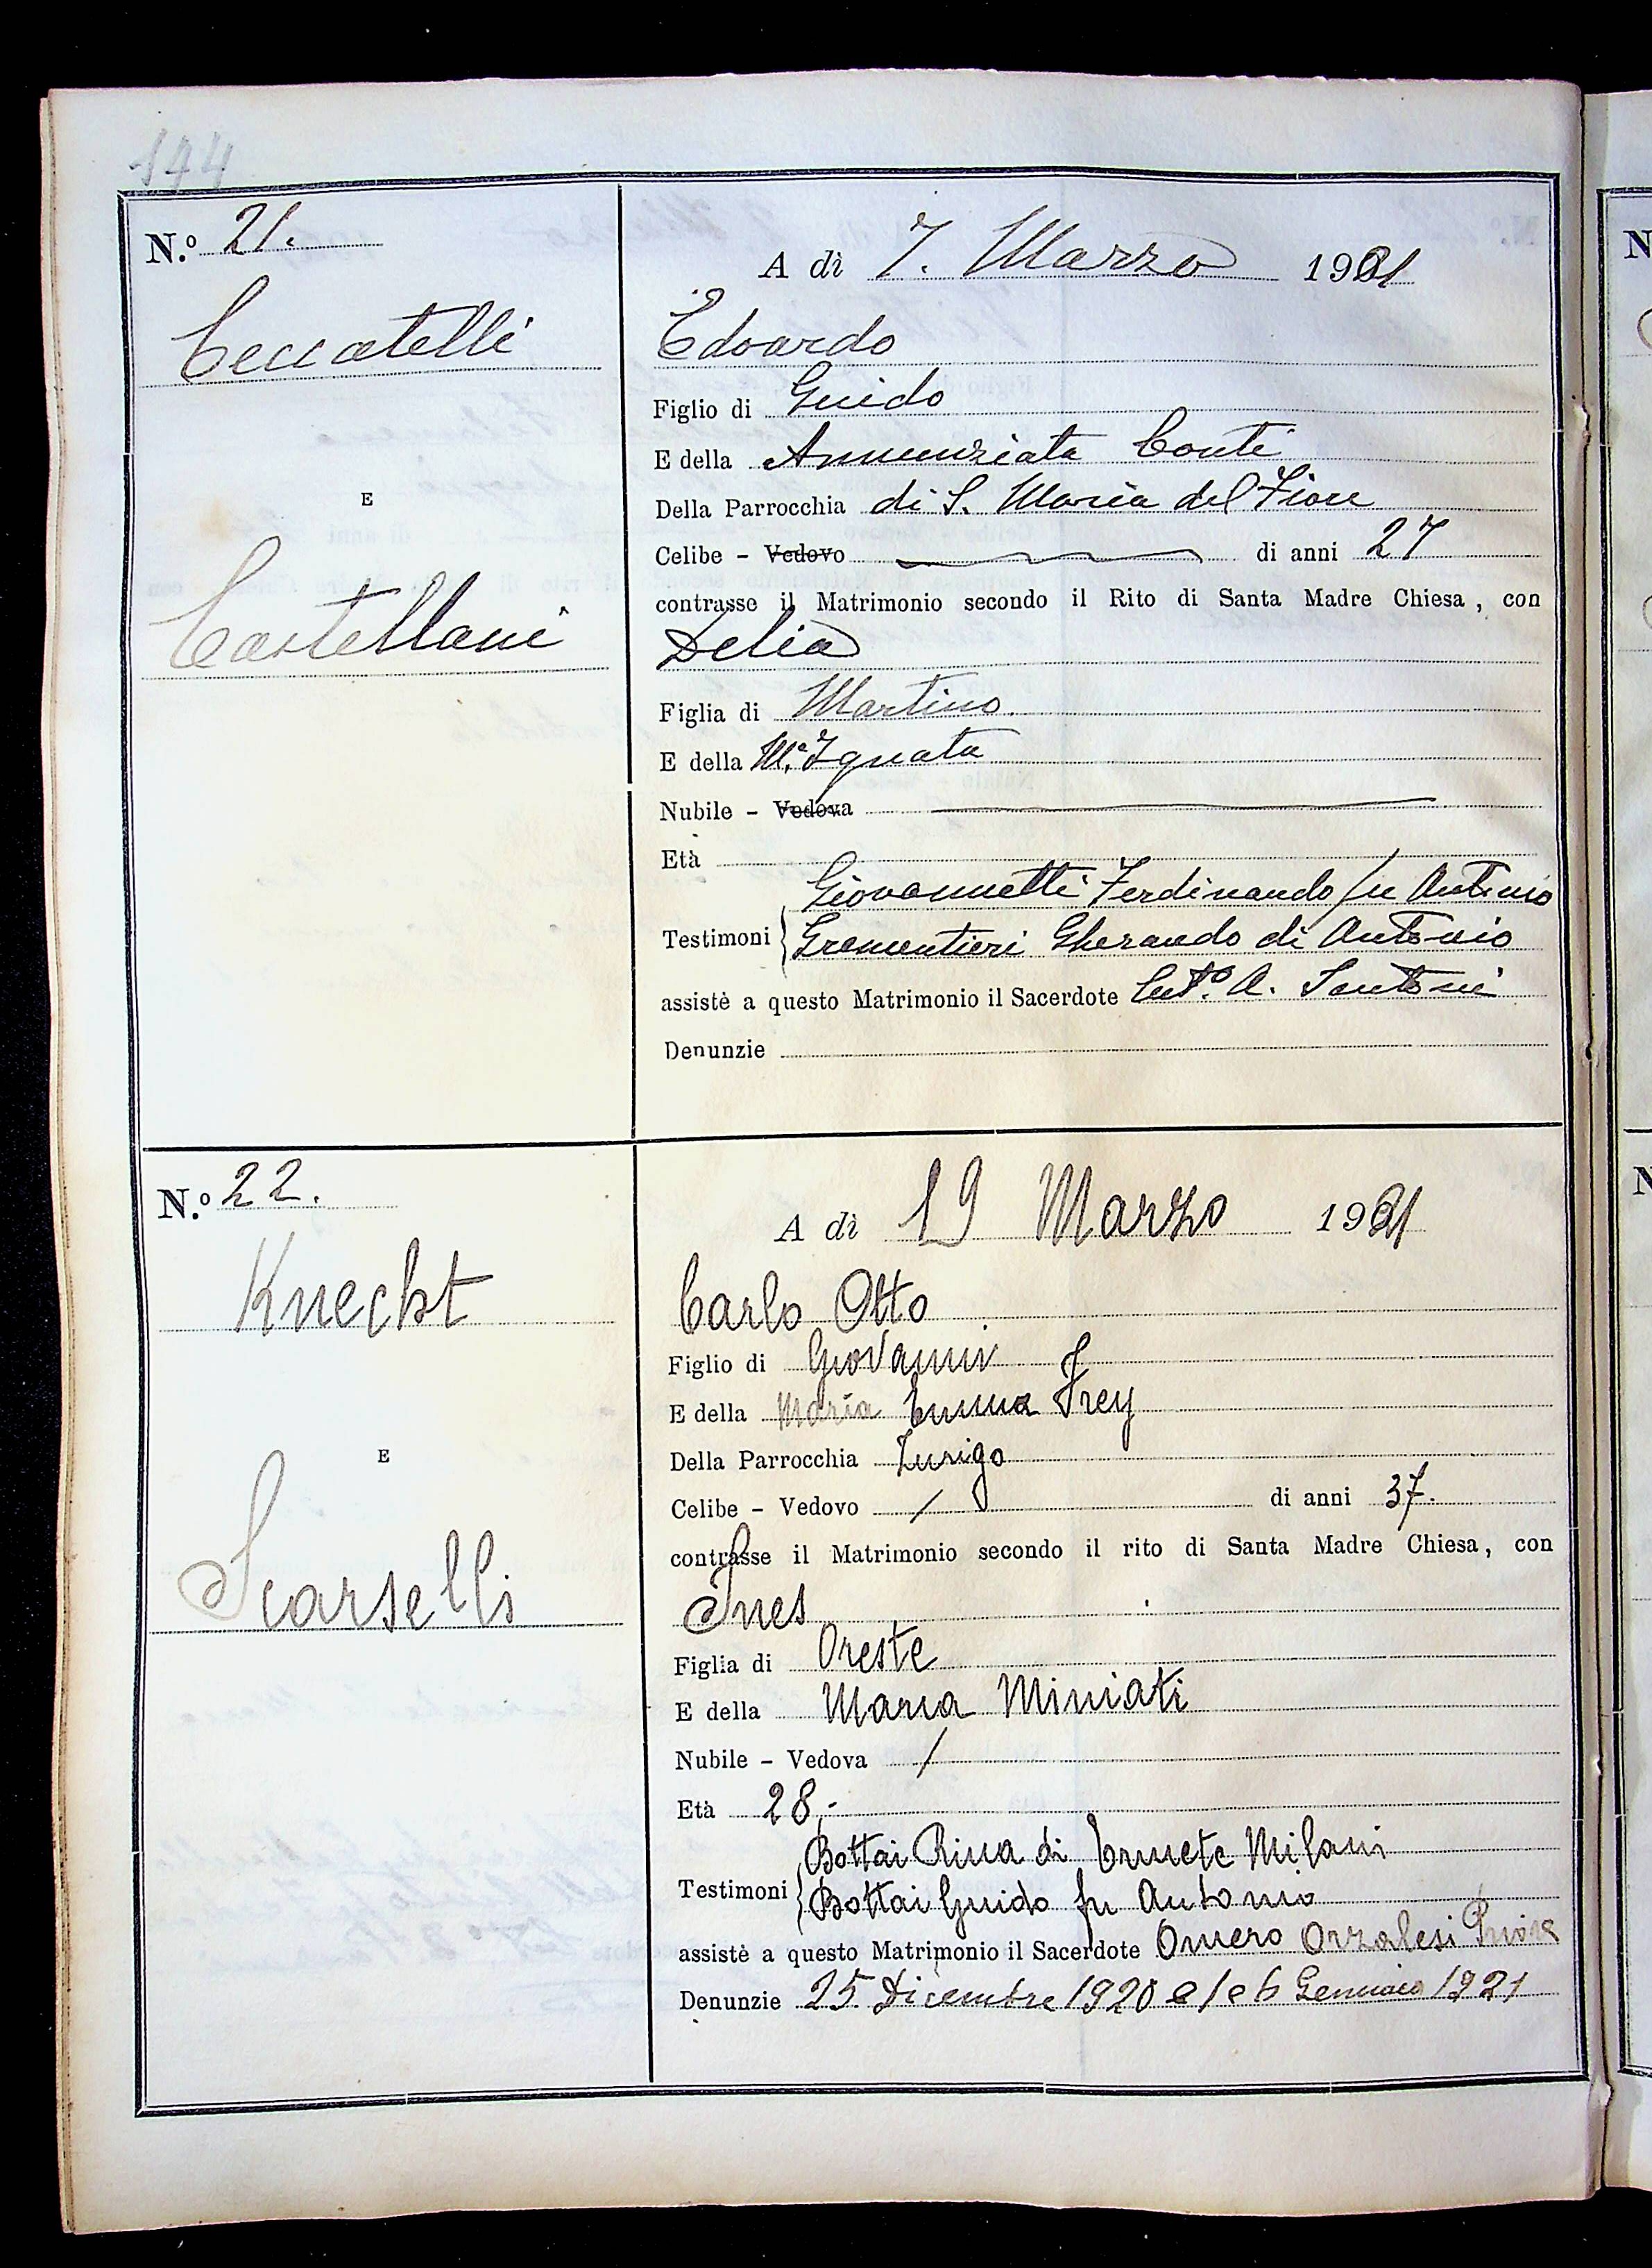 144
N.º 21.
A dì 7. Marzo 1921
Ceccatelli
Edoardo
Figlio di Guido
E della Annunziata Conti
E
Della Parrocchia di S. Maria del Fiore
Celibe - Vedovo di anni 27
contrasse il Matrimonio secondo il Rito di Santa Madre Chiesa, con
Castellani
Delia
Figlia di Martino
E della M.ª Ignota
Nubile - Vedova
Età
Giovannetti Ferdinando fu Antonio
Testimoni Grementieri Gherardo di Antonio
assistè a questo Matrimonio il Sacerdote Cut.º A. Santoni
Denunzie
N.º 22.
A dì 19 Marzo 1921
Knecht
Carlo Otto
Figlio di Giovanni
E della Maria Emma Frey
E
Della Parrocchia Zurigo
Celibe - Vedovo / di anni 37.
contrasse il Matrimonio secondo il rito di Santa Madre Chiesa, con
Scarselli
Ines
Figlia di Oreste
E della Maria Miniati
Nubile - Vedova /
Età 28,-
Bottai Rina di Ermete Milani
Testimoni Bottai Guido fu Antonio
assistè a questo Matrimonio il Sacerdote Omero Orzalesi Priore
Denunzie 25 Dicembre 1920 e 1 e 6 Gennaio 1921
N
N